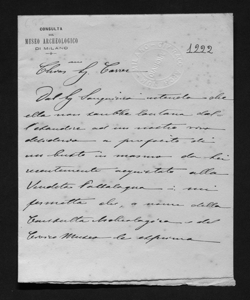 CONSULTA
DEL
MUSEO ARCHEOLOGICO
DI MILANO
1222
Chiar.mo Sig. Cav.
Dal Sig. intendo che
ella non sarebbe lontana dal
ad un nostro
desiderio a proposito di
un busto in marmo da Lei
recentemente acquistato alla
Vendita i mi
permetta che a nome della
Consulta Archeologica e del
Civico Museo le esprima